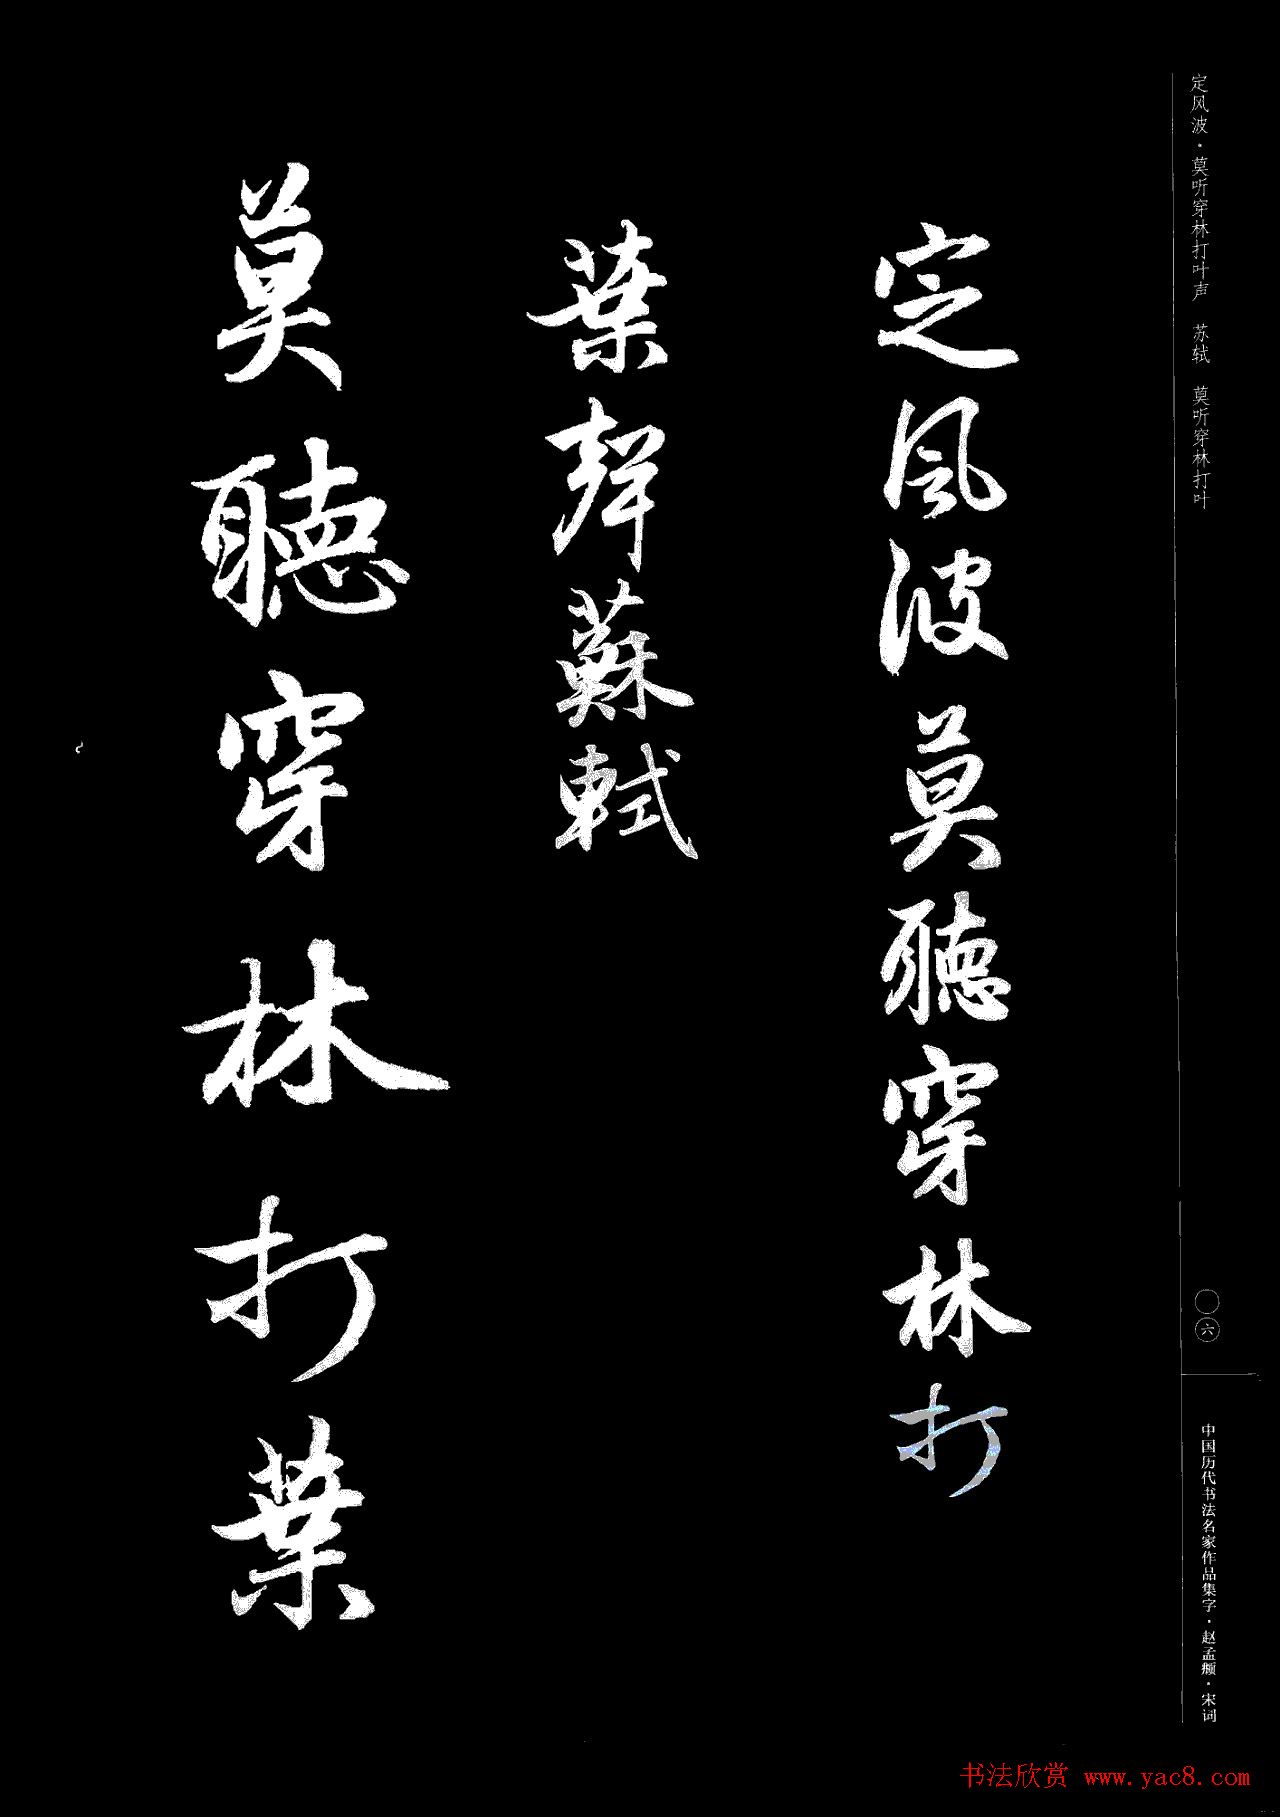 定风波·莫听穿林打叶声 苏轼 莫听穿林打叶
定風波莫聽穿林打
葉聲蘇軾
莫聽穿林打葉
〇六
中国历代书法名家作品集字·赵孟頫·宋词
书法欣赏 www.yac8.com